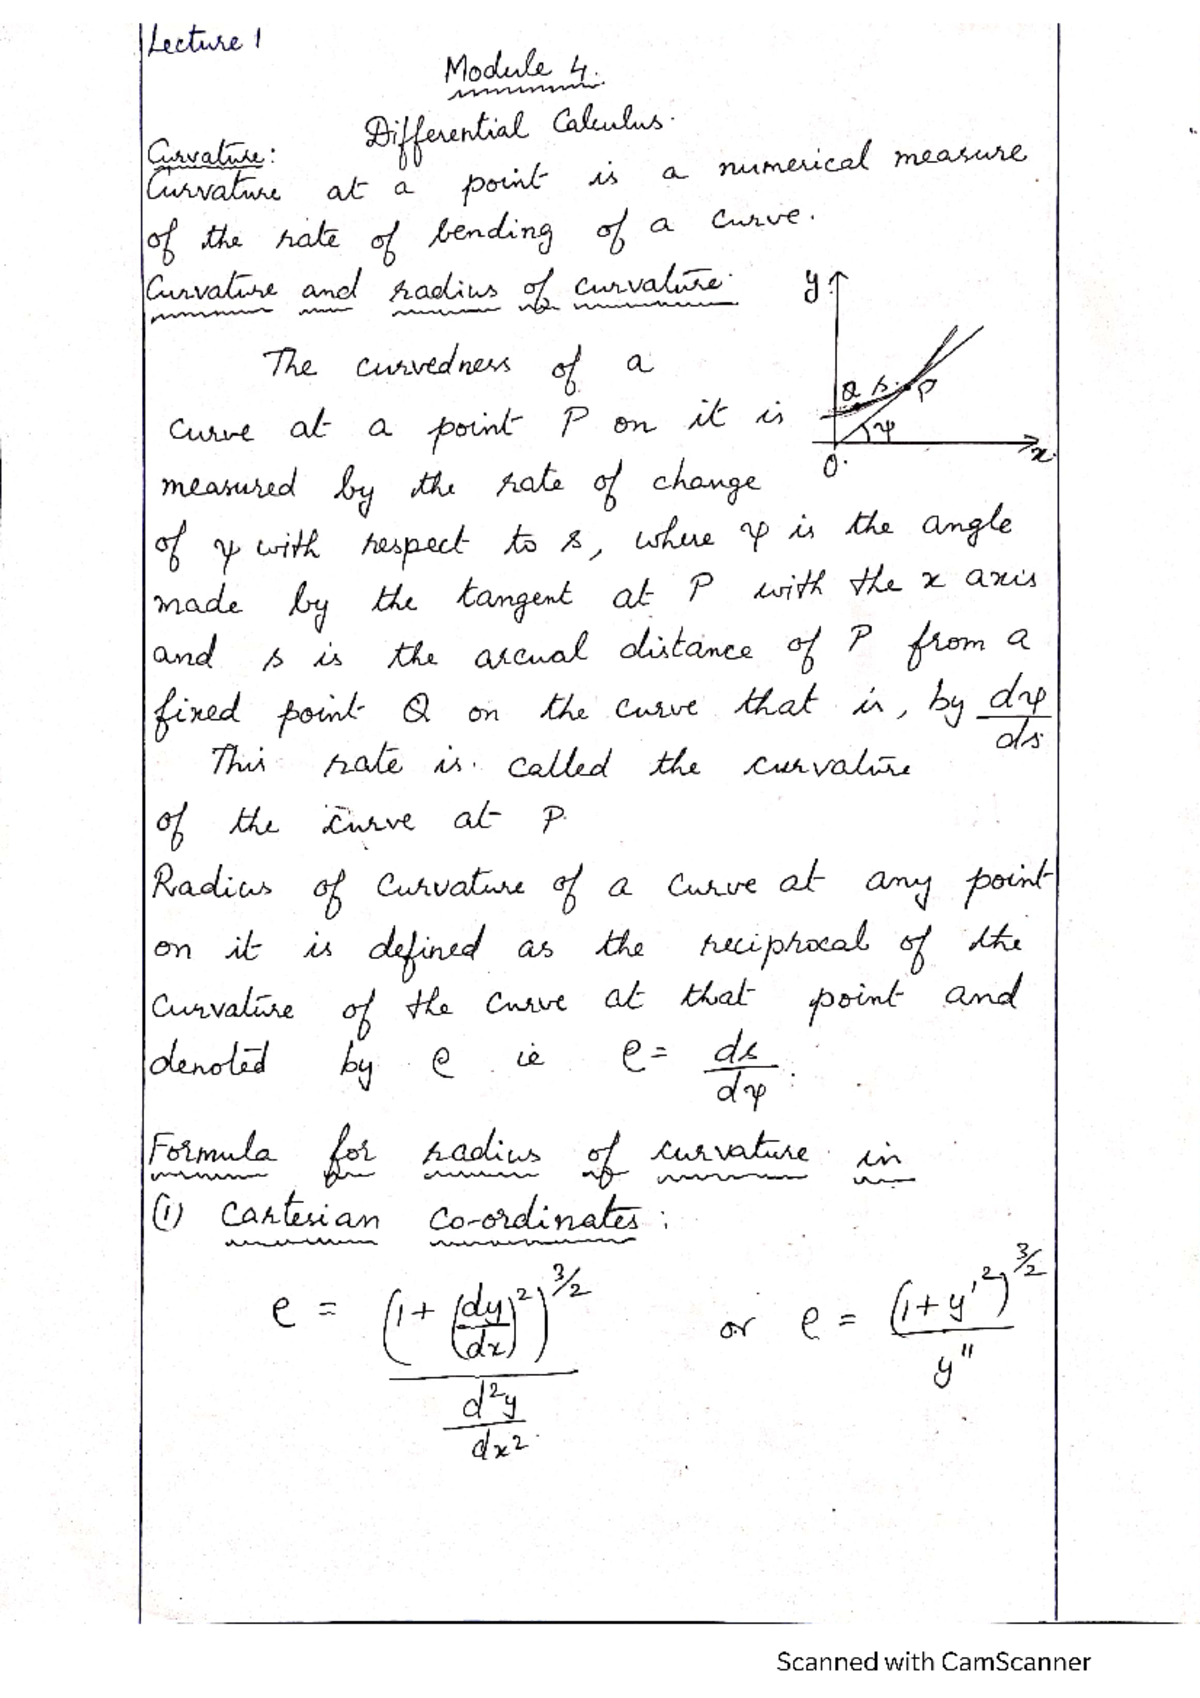 Lecture 1
Module 4.
Differential Calculus.
Curvature:
Curvature at a point is a numerical measure
of the rate of bending of a curve.
Curvature and radius of curvature.
y
The curvedness of a
Q s. P
curve at a point P on it is
ψ
O. x
measured by the rate of change
of ψ with respect to s, where ψ is the angle
made by the tangent at P with the x axis
and s is the arcual distance of P from a
fixed point Q on the curve that is, by dψ/ds
This rate is called the curvature
of the curve at P.
Radius of curvature of a curve at any point
on it is defined as the reciprocal of the
curvature of the curve at that point and
denoted by ρ ie ρ = ds/dψ.
Formula for radius of curvature in
(1) Cartesian Co-ordinates:
ρ = (1 + (dy/dx)²)^3/2 / d²y/dx² or ρ = (1 + y'²)^3/2 / y''
Scanned with CamScanner